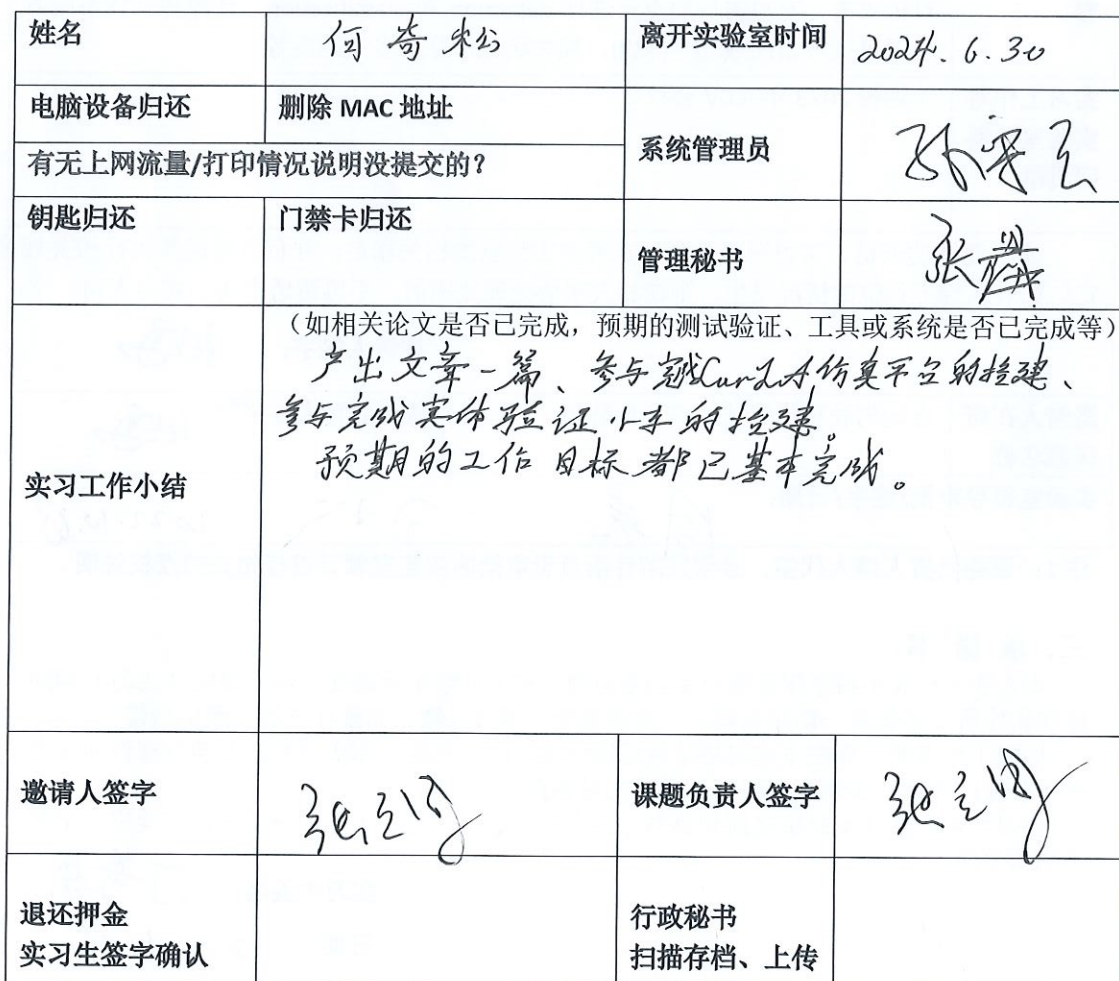 姓名 何奇松 离开实验室时间 2024.6.30
电脑设备归还 删除 MAC 地址
系统管理员
有无上网流量/打印情况说明没提交的？
钥匙归还 门禁卡归还
管理秘书 张
（如相关论文是否已完成，预期的测试验证、工具或系统是否已完成等）
产出文章一篇、参与完成仿真平台的搭建、
参与完成实体验证小车的搭建。
预期的工作目标都已基本完成。
实习工作小结
邀请人签字 课题负责人签字
退还押金 行政秘书
实习生签字确认 扫描存档、上传